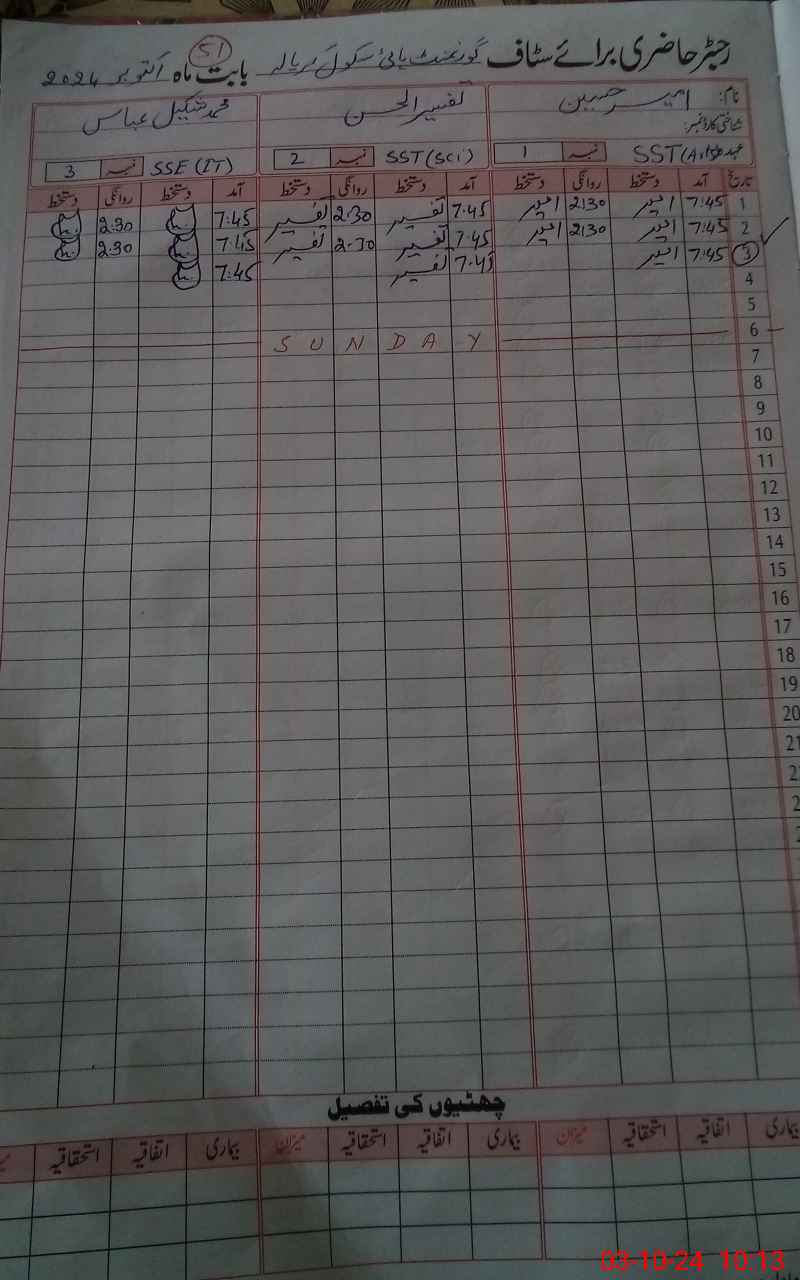 رجسٹر حاضری برائے سٹاف گورنمنٹ ہائی سکول مریالہ بابت ماہ اکتوبر 2024
51
نام: امیر حسین تفسیر الحسن محمد شکیل عباس
شناختی کارڈ نمبر:
عہدہ SST (Arts) نمبر 1 SST (Sci) نمبر 2 SSE (IT) نمبر 3
تاریخ آمد دستخط روانگی دستخط آمد دستخط روانگی دستخط آمد دستخط روانگی دستخط
1 7:45 امیر 2:30 امیر 7:45 تفسیر 2:30 تفسیر 7:45 2:30
2 7:45 امیر 2:30 امیر 7:45 تفسیر 2:30 تفسیر 7:45 2:30
3 7:45 امیر 7:45 تفسیر 7:45
4
5
6 SUNDAY
7
8
9
10
11
12
13
14
15
16
17
18
19
20
21
چھٹیوں کی تفصیل
بیماری اتفاقیہ استحقاقیہ میزان بیماری اتفاقیہ استحقاقیہ میزان بیماری اتفاقیہ استحقاقیہ
03-10-24 10:13